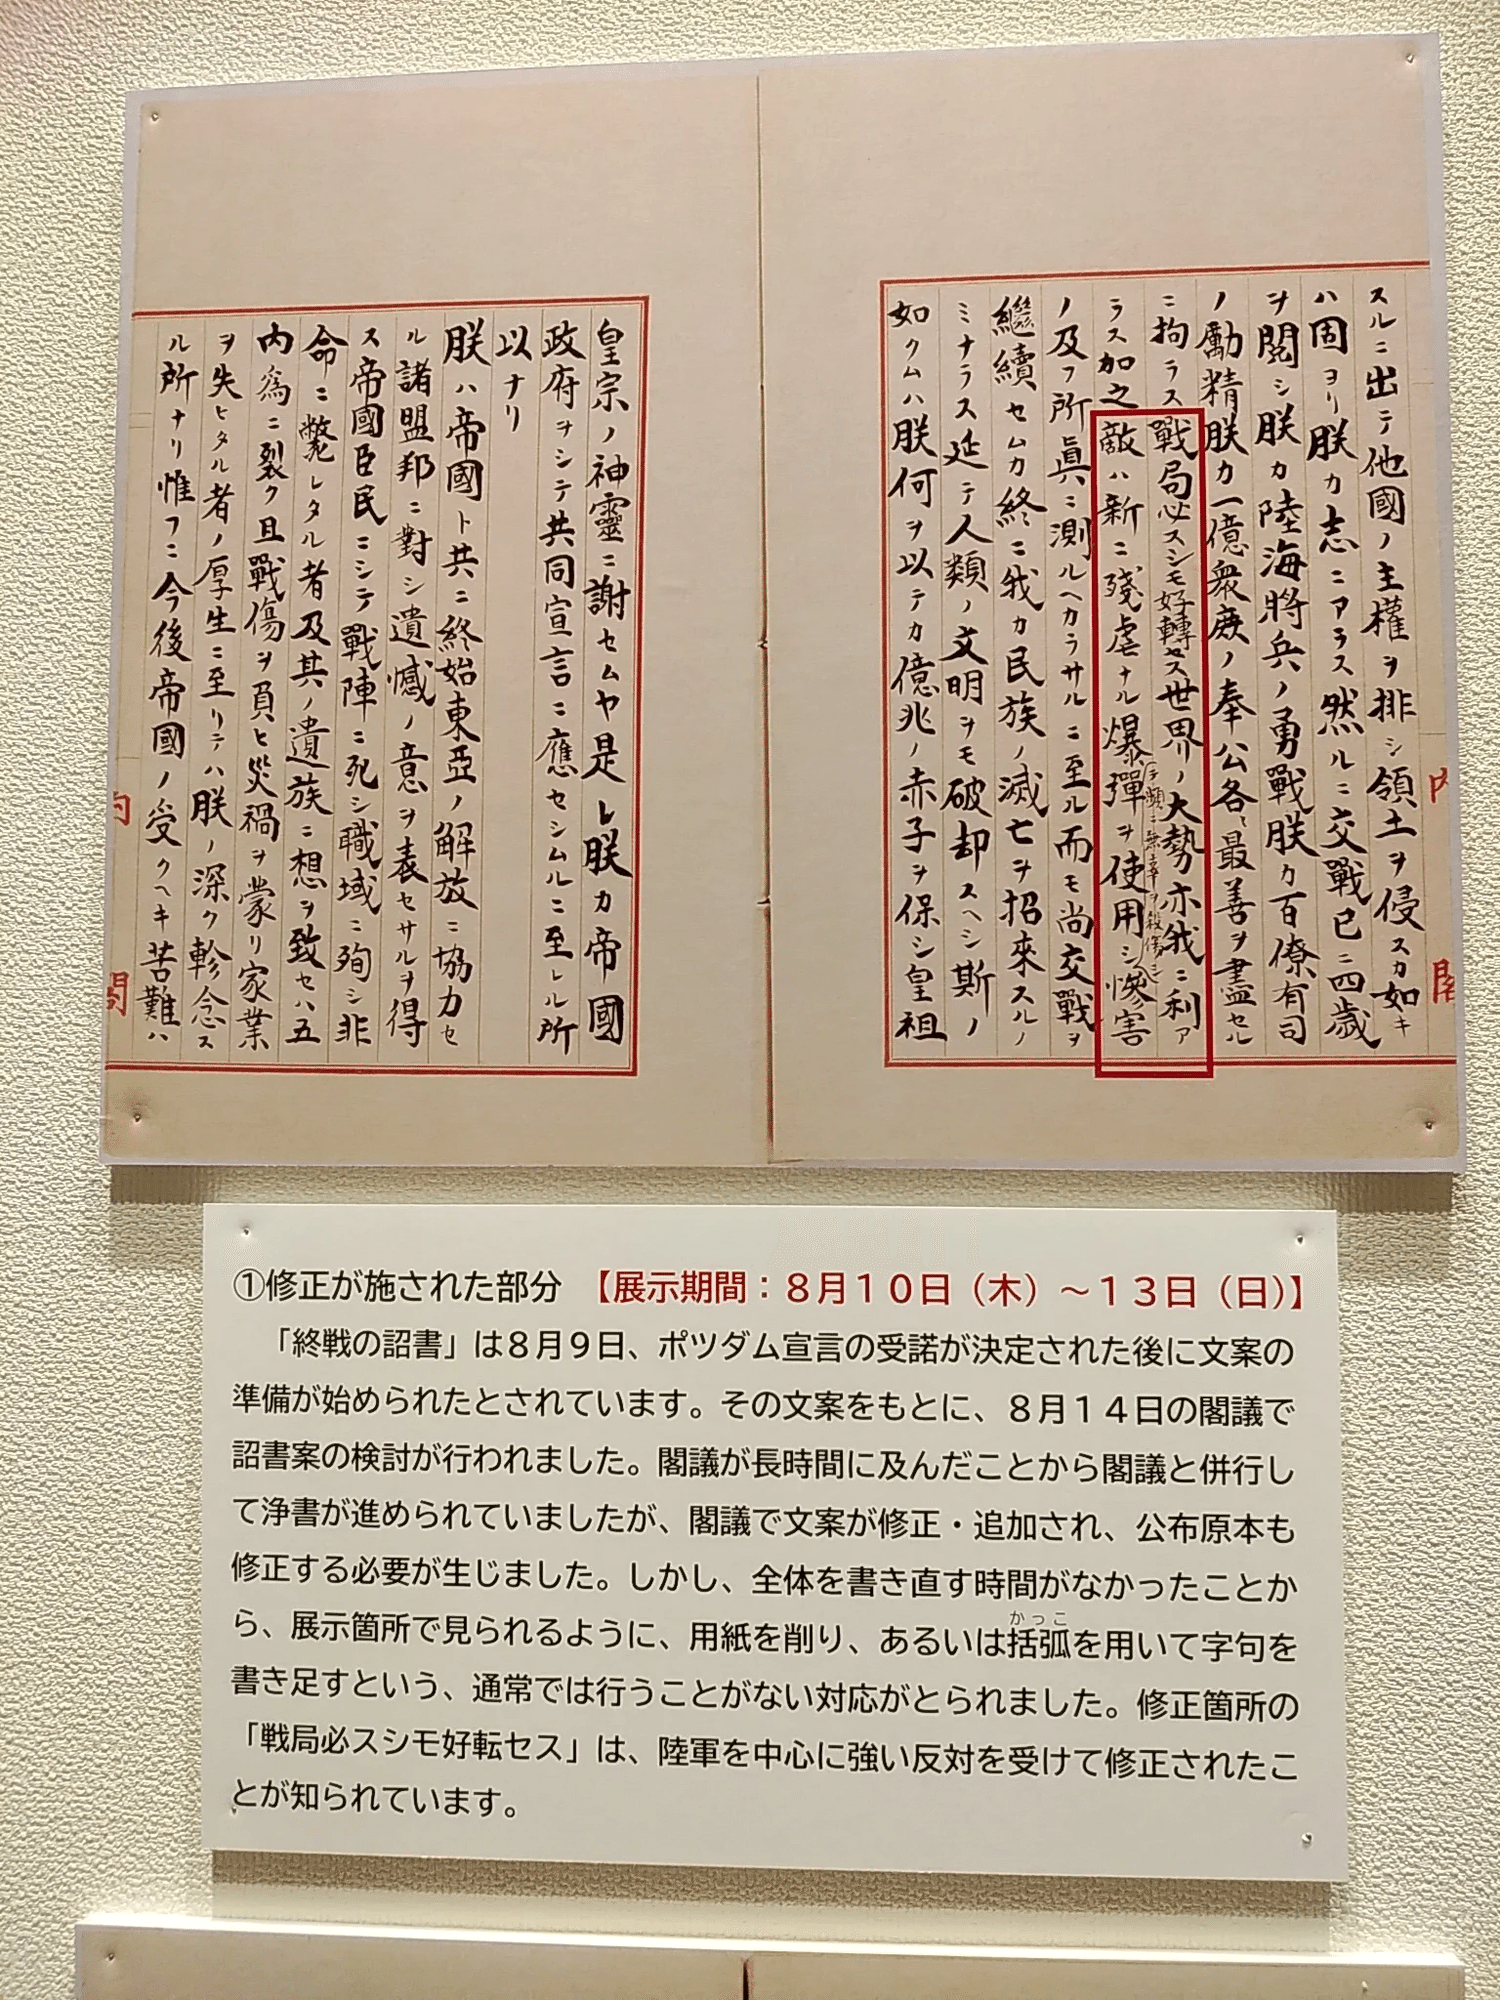 スルニ出テ他國ノ主權ヲ排シ領土ヲ侵スカ如キ
ハ固ヨリ朕カ志ニアラス然ルニ交戰已ニ四歳
ヲ閲シ朕カ陸海將兵ノ勇戰朕カ百僚有司
ノ勵精朕カ一億衆庶ノ奉公各〻最善ヲ盡セル
ニ拘ラス戰局必スシモ好轉セス世界ノ大勢亦我ニ利ア
ラス加之敵ハ新ニ殘虐ナル爆彈ヲ使用シ慘害
テ頻ニ無辜ヲ殺傷シ
ノ及フ所眞ニ測ルヘカラサルニ至ル而モ尚交戰ヲ
繼續セムカ終ニ我カ民族ノ滅亡ヲ招來スルノ
ミナラス延テ人類ノ文明ヲモ破却スヘシ斯ノ
如クムハ朕何ヲ以テカ億兆ノ赤子ヲ保シ皇祖
内閣
皇宗ノ神靈ニ謝セムヤ是レ朕カ帝國
政府ヲシテ共同宣言ニ應セシムルニ至レル所
以ナリ
朕ハ帝國ト共ニ終始東亞ノ解放ニ協力セ
ル諸盟邦ニ對シ遺憾ノ意ヲ表セサルヲ得
ス帝國臣民ニシテ戰陣ニ死シ職域ニ殉シ非
命ニ斃レタル者及其ノ遺族ニ想ヲ致セハ五
内爲ニ裂ク且戰傷ヲ負ヒ災禍ヲ蒙リ家業
ヲ失ヒタル者ノ厚生ニ至リテハ朕ノ深ク軫念ス
ル所ナリ惟フニ今後帝國ノ受クヘキ苦難ハ
内閣
①修正が施された部分 【展示期間：８月１０日（木）～１３日（日）】
「終戦の詔書」は８月９日、ポツダム宣言の受諾が決定された後に文案の
準備が始められたとされています。その文案をもとに、８月１４日の閣議で
詔書案の検討が行われました。閣議が長時間に及んだことから閣議と併行し
て浄書が進められていましたが、閣議で文案が修正・追加され、公布原本も
修正する必要が生じました。しかし、全体を書き直す時間がなかったことか
ら、展示箇所で見られるように、用紙を削り、あるいは括弧を用いて字句を
かっこ
書き足すという、通常では行うことがない対応がとられました。修正箇所の
「戦局必スシモ好転セス」は、陸軍を中心に強い反対を受けて修正されたこ
とが知られています。